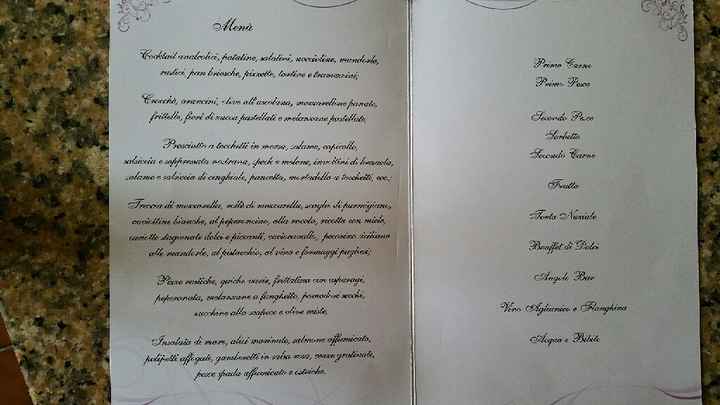 Menù
Cocktail analcolici, patatine, salatini, noccioline, mandorle,
rustici, pan brioche, pizzette, tartine e tramezzini;
Crocchè, arancini, olive all'ascolana, mozzarelline panate,
frittelle, fiori di zucca pastellati e melanzane pastellate;
Prosciutto a tocchetti in mezzo, salame, capicollo,
salsiccia e soppressata nostrana, speck e melone, involtini di bresaola,
salame e salsiccia di cinghiale, pancetta, mortadella a tocchetti, ecc.;
Treccia di mozzarella, nodo di mozzarella, scaglie di parmigiano,
caciottine bianche, al peperoncino, alla rucola, ricotta con miele,
caciotte stagionate dolci e piccanti, caciocavallo, pecorino siciliano
alle mandorle, al pistacchio, al vino e formaggi pugliesi;
Pizze rustiche, quiche varie, frittatina con asparagi,
peperonata, melanzane a funghetto, pomodori secchi,
zucchine alla scapece e olive miste;
Insalata di mare, alici marinate, salmone affumicato,
polipetti affogati, gamberetti in salsa rosa, cozze gratinate,
pesce spada affumicato e ostriche.
Primo Carne
Primo Pesce
Secondo Pesce
Sorbetto
Secondo Carne
Frutta
Torta Nuziale
Bouffet di Dolci
Angolo Bar
Vino Aglianico e Falanghina
Acqua e Bibite